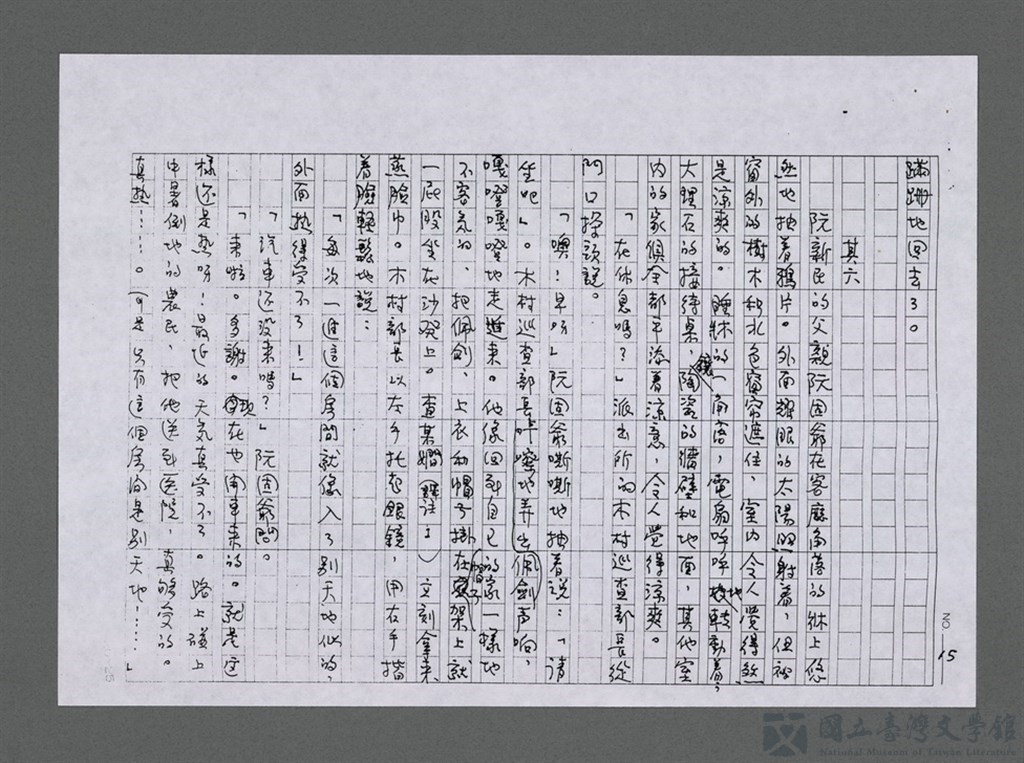 蹣跚地回去了。
其六
阮新民的父親阮固爺在客廳角落的牀上悠
然地抽着鴉片。外面耀眼的太陽照射着,但被
窗外的樹木和水色窗帘遮住,室內令人覺得煞
是涼爽的。睡牀的一角落,電扇呼呼地轉動着,
大理石的接待桌、鏡、陶瓷的牆壁和地面,其他室
內的家俱全部平添着涼意,令人覺得涼爽。
「在休息嗎?」派出所的木村巡查部長從
門口探頭說。
「噢!早呀」阮固爺嘶嘶地抽着說:「請
坐吧」。木村巡查部長咔嚓地弄出佩劍声响,
嘎噔嘎噔地走進來。他像回到自己的家一樣地
不客気的、把佩劍、上衣和帽子掛在帽子架上就
一屁股坐在沙発上。查某嫺(譯註1)立刻拿來
蒸臉巾。木村部長以左手托起銀鏡,用右手揩
着臉輕鬆地說:
「每次一進這個房間就像入了別天地似的,
外面热得受不了!」
「汽車还没來嗎?」阮固爺問。
「來啦。多謝。現在也用車來的。就是這
樣还是热呀!最近的天気真受不了。路上碰上
中暑倒地的農民,把他送到医院,真够受的。
真热……。可是只有這個房間是別天地!……」
NO. 15
國立臺灣文學館
National Museum of Taiwan Literature